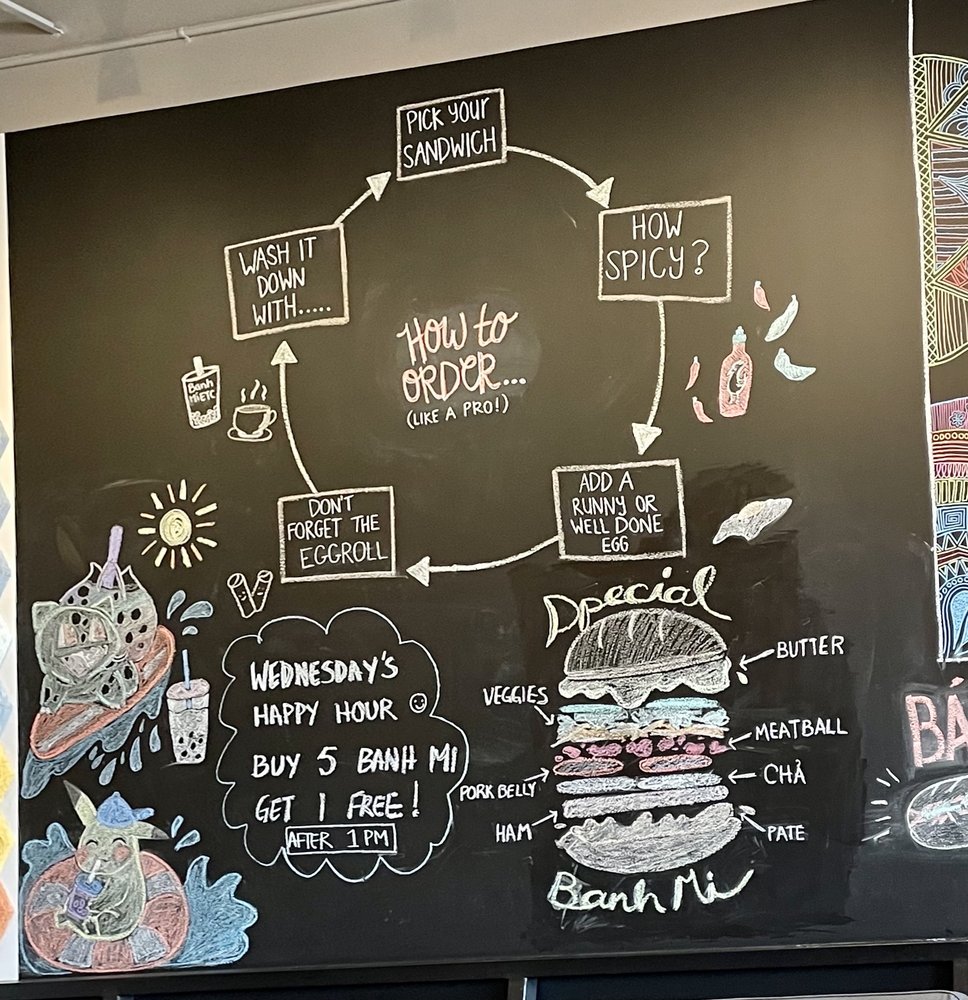 PICK YOUR
SANDWICH
HOW
SPICY?
ADD A
RUNNY OR
WELL DONE
EGG
DON'T
FORGET THE
EGGROLL
WASH IT
DOWN
WITH.....
HOW to
ORDER...
(LIKE A PRO!)
Banh
Mi ETC
WEDNESDAY'S
HAPPY HOUR
BUY 5 BANH MI
GET 1 FREE!
AFTER 1 PM
Dpecial
BUTTER
VEGGIES
MEATBALL
PORK BELLY
CHẢ
HAM
PATE
Banh Mi
BÁ